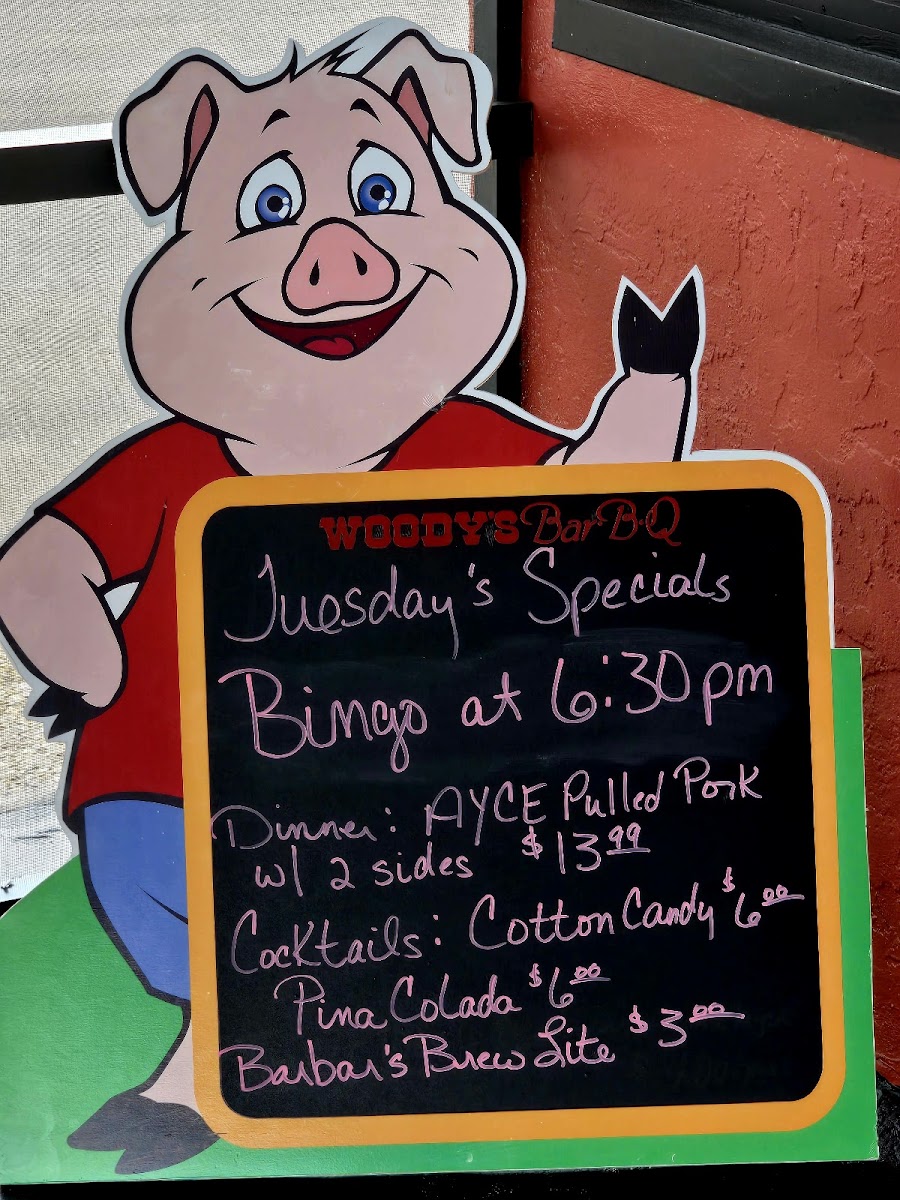 WOODY'S Bar-B-Q
Tuesday's Specials
Bingo at 6:30pm
Dinner: AYCE Pulled Pork
w/ 2 sides $13.99
Cocktails: Cotton Candy $6.00
Pina Colada $6.00
Barbar's Brew Lite $3.00